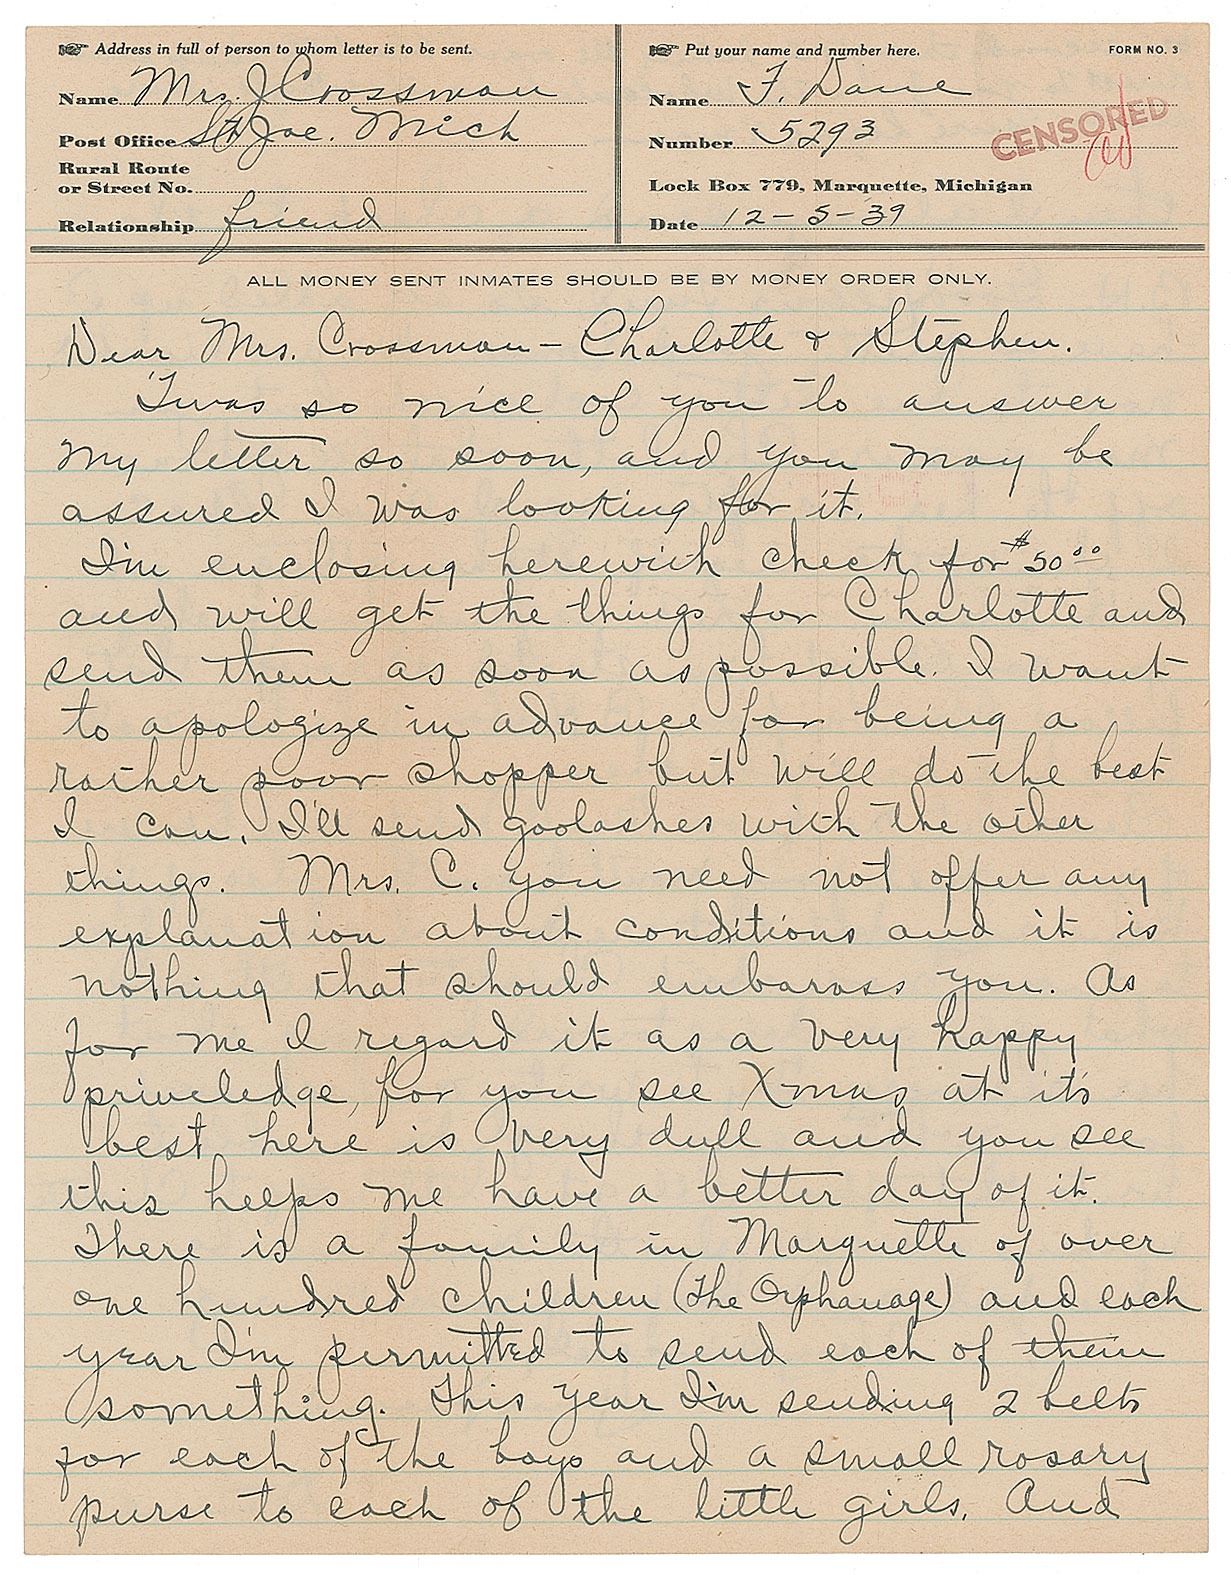 Address in full of person to whom letter is to be sent.
Name Mrs. J Crossman
Post Office St. Joe. Mich
Rural Route
or Street No.
Relationship friend
Put your name and number here.
FORM NO. 3
Name F. Dane
Number 5293
CENSORED
Lock Box 779, Marquette, Michigan
Date 12-5-39
ALL MONEY SENT INMATES SHOULD BE BY MONEY ORDER ONLY.
Dear Mrs. Crossman - Charlotte & Stephen.
'Twas so nice of you to answer
my letter so soon, and you may be
assured I was looking for it.
I'm enclosing herewith check for $50.00
and will get the things for Charlotte and
send them as soon as possible. I want
to apologize in advance for being a
rather poor shopper but will do the best
I can. I'll send goolashes with the other
things. Mrs. C. you need not offer any
explanation about conditions and it is
nothing that should embarass you. As
for me I regard it as a very happy
priveledge, for you see Xmas at its
best here is very dull and you see
this helps me have a better day of it.
There is a family in Marquette of over
one hundred children (The Orphanage) and each
year I'm permitted to send each of them
something. This year I'm sending 2 belts
for each of the boys and a small rosary
purse to each of the little girls. And